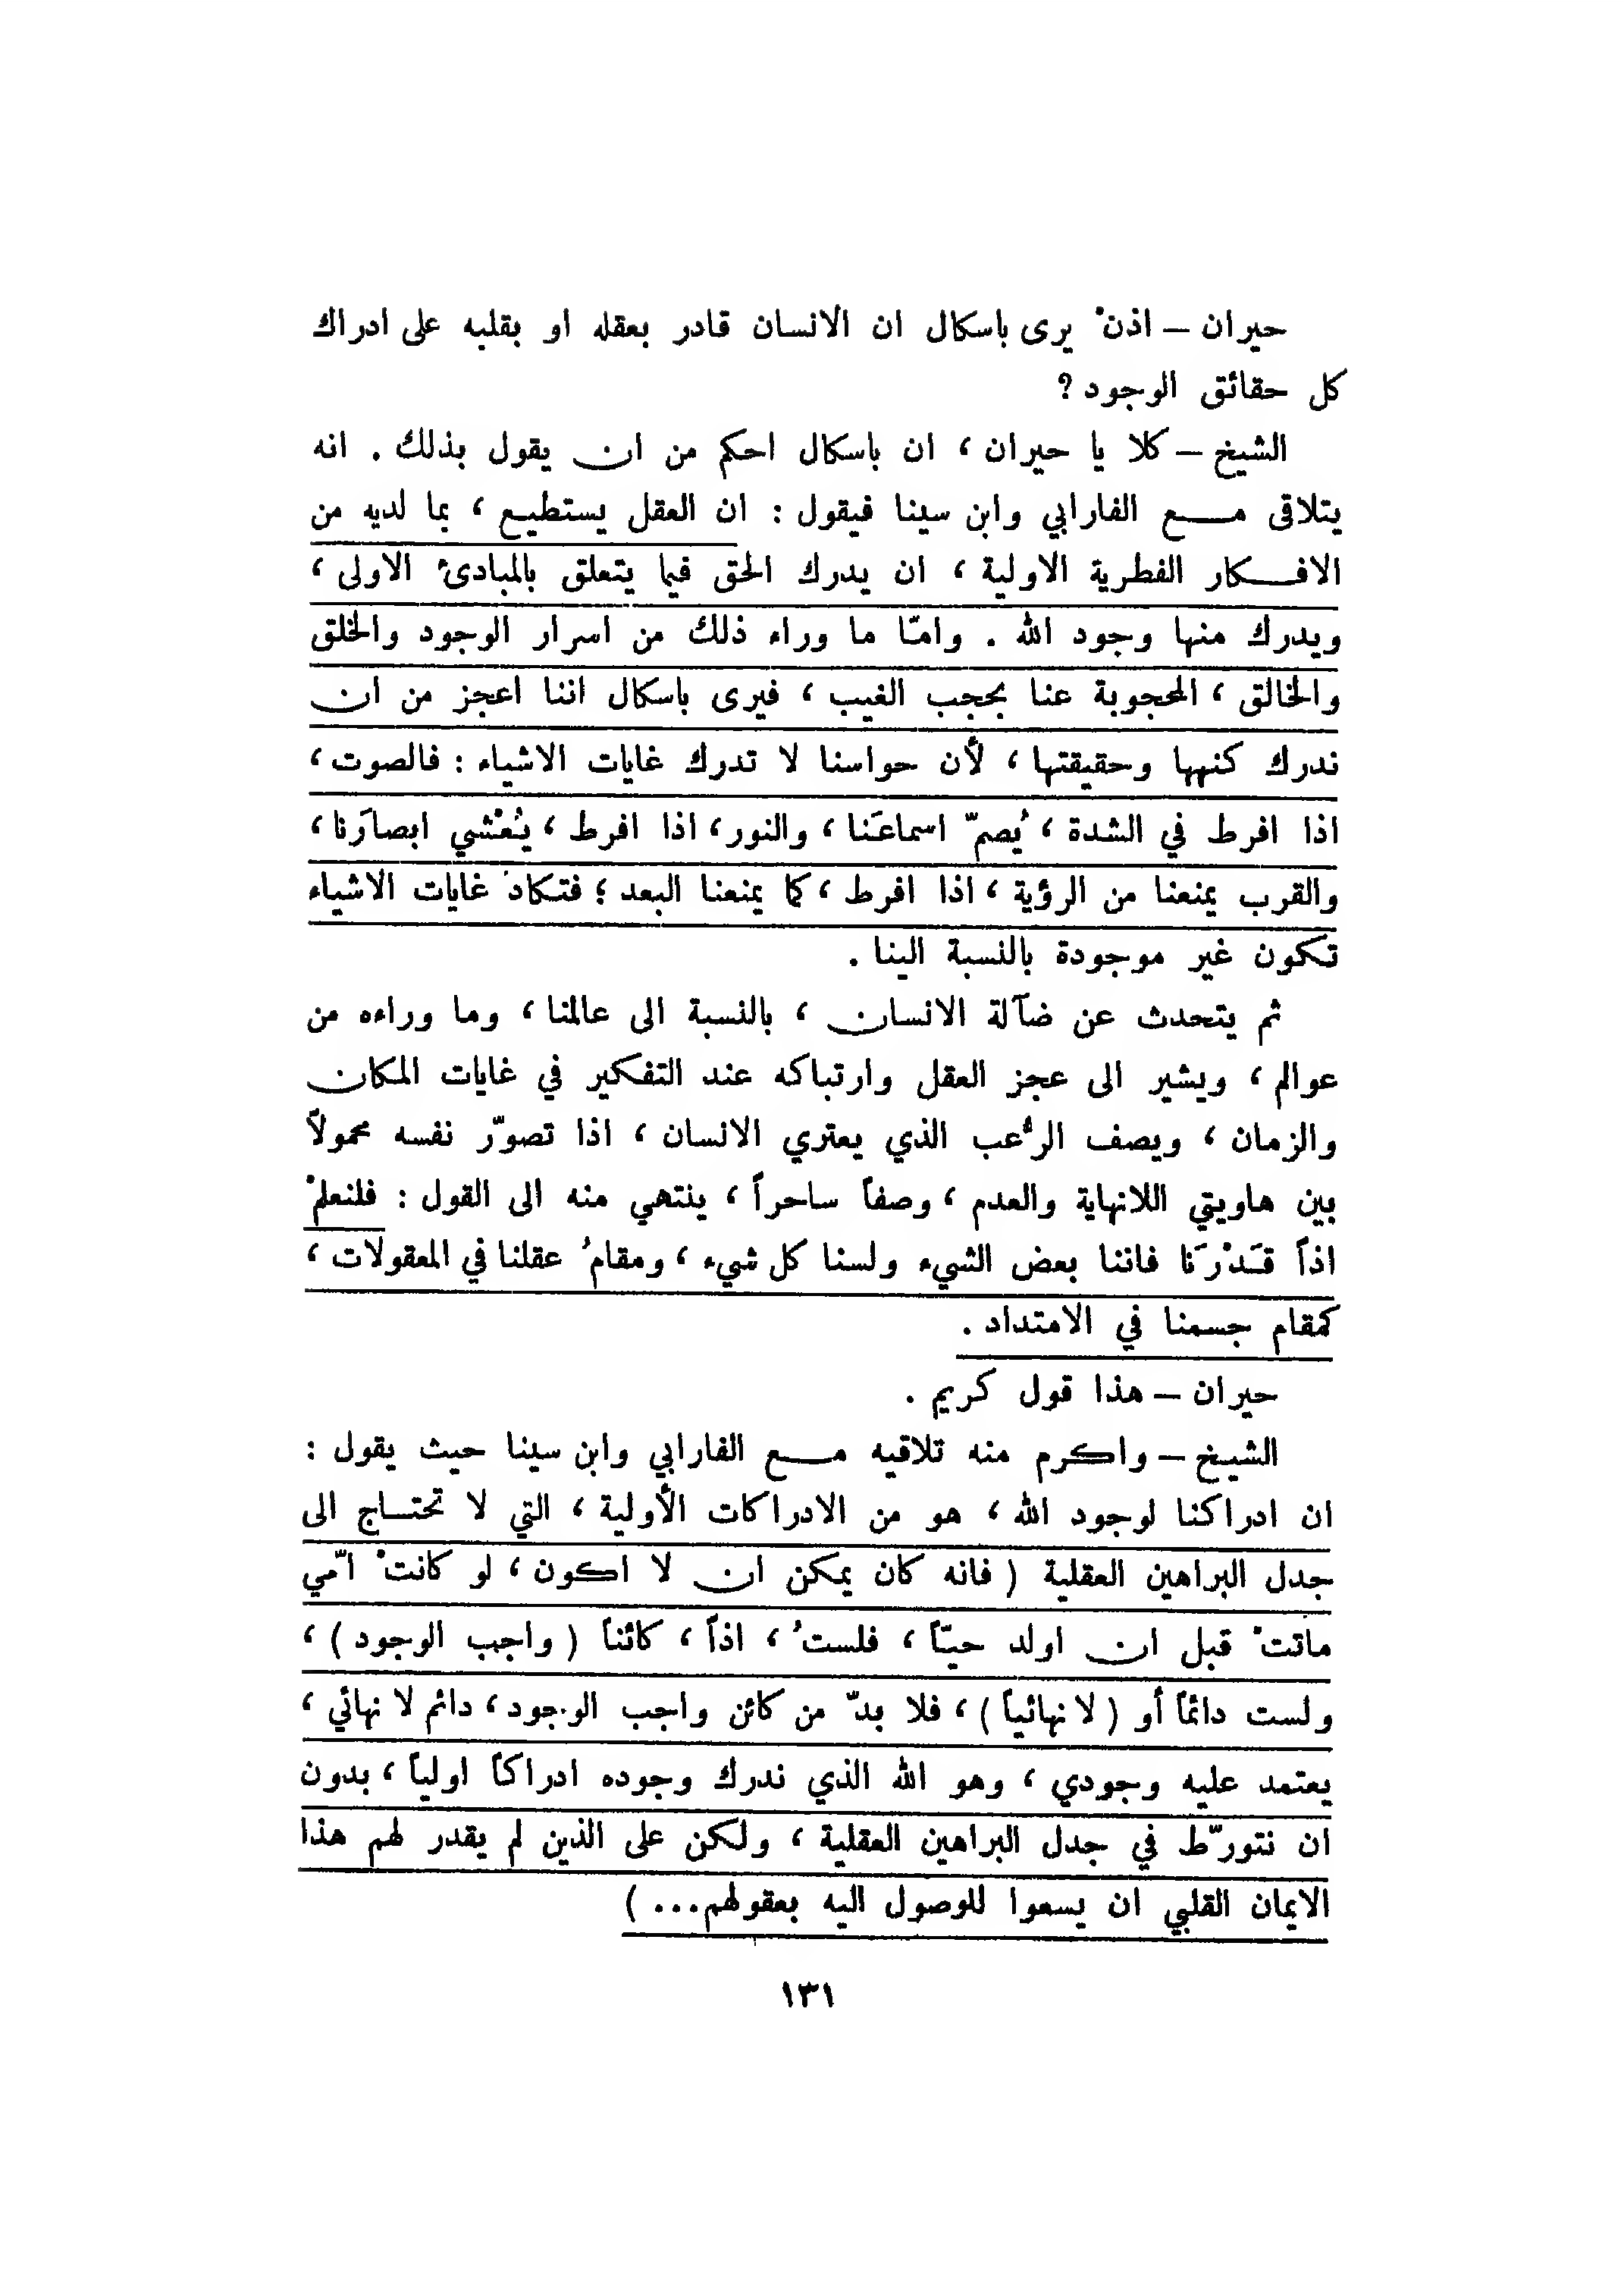 حيران – اذنْ يرى باسكال ان الانسان قادر بعقله او بقلبه على ادراك
كل حقائق الوجود ؟
الشيخ – كلا يا حيران ، ان باسكال احكم من ان يقول بذلك . انه
يتلاقى مع الفارابي وابن سينا فيقول : ان العقل يستطيع ، بما لديه من
الافكار الفطرية الاولية ، ان يدرك الحق فيما يتعلق بالمبادئ الاولى ،
ويدرك منها وجود الله . وامّا ما وراء ذلك من اسرار الوجود والخلق
والخالق ، المحجوبة عنا بحجب الغيب ، فيرى باسكال اننا اعجز من ان
ندرك كنهها وحقيقتها ، لأن حواسنا لا تدرك غايات الاشياء : فالصوت ،
اذا افرط في الشدة ، يُصمّ اسماعَنا ، والنور ، اذا افرط ، يُعْشي ابصارَنا ،
والقرب يمنعنا من الرؤية ، اذا افرط ، كما يمنعنا البعد ؛ فتكادُ غايات الاشياء
تكون غير موجودة بالنسبة الينا .
ثم يتحدث عن ضآلة الانسان ، بالنسبة الى عالمنا ، وما وراءه من
عوالم ، ويشير الى عجز العقل وارتباكه عند التفكير في غايات المكان
والزمان ، ويصف الرُّعب الذي يعتري الانسان ، اذا تصوّر نفسه محمولاً
بين هاويتي اللانهاية والعدم ، وصفاً ساحراً ، ينتهي منه الى القول : فلنعلمْ
اذاً قَدْرَنا فاننا بعض الشيء ولسنا كل شيء ، ومقامُ عقلنا في المعقولات ،
كمقام جسمنا في الامتداد .
حيران – هذا قول كريم .
الشيخ – واكرم منه تلاقيه مع الفارابي وابن سينا حيث يقول :
ان ادراكنا لوجود الله ، هو من الادراكات الأولية ، التي لا تحتاج الى
جدل البراهين العقلية ( فانه كان يمكن ان لا اكون ، لو كانتْ امّي
ماتتْ قبل ان اولد حيّاً ، فلستُ ، اذاً ، كائناً ( واجب الوجود ) ،
ولست دائماً أو ( لا نهائياً ) ، فلا بدّ من كائن واجب الوجود ، دائم لا نهائي ،
يعتمد عليه وجودي ، وهو الله الذي ندرك وجوده ادراكاً اولياً ، بدون
ان نتورّط في جدل البراهين العقلية ، ولكن على الذين لم يقدر لهم هذا
الايمان القلبي ان يسعوا للوصول اليه بعقولهم... )
١٣١